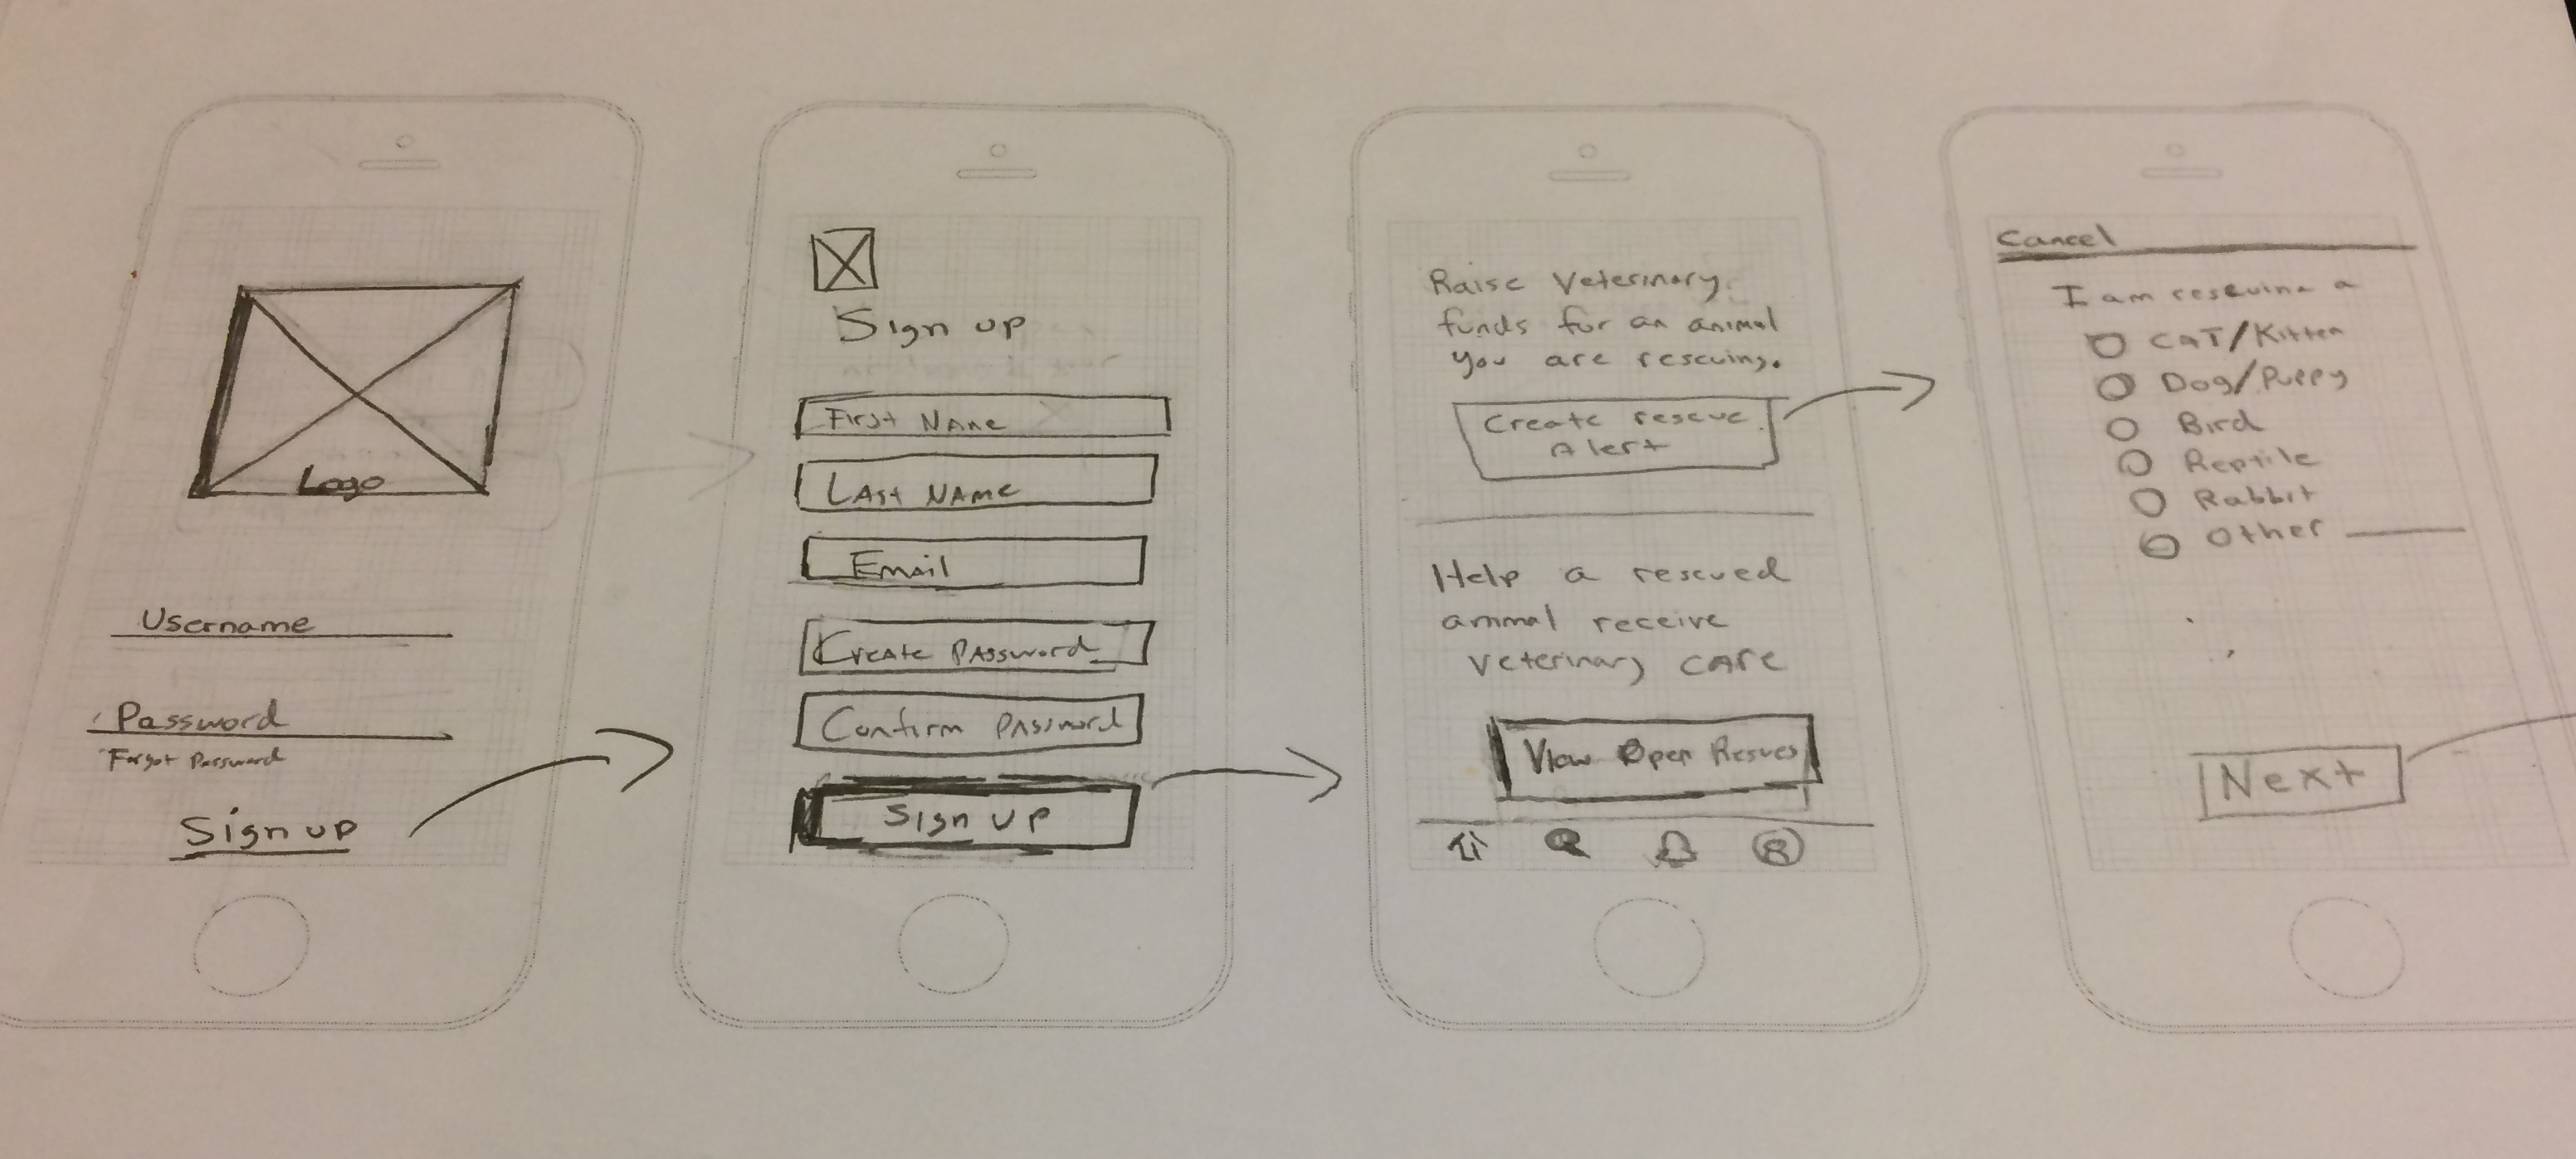 Logo
Username
Password
Forgot Password
Sign up
Sign up
First Name
Last Name
Email
Create Password
Confirm Password
Sign up
Raise Veterinary
funds for an animal
you are rescuing.
Create rescue
Alert
Help a rescued
animal receive
veterinary care
View Open Resues
Cancel
I am rescuing a
CAT/Kitten
Dog/Puppy
Bird
Reptile
Rabbit
Other
Next